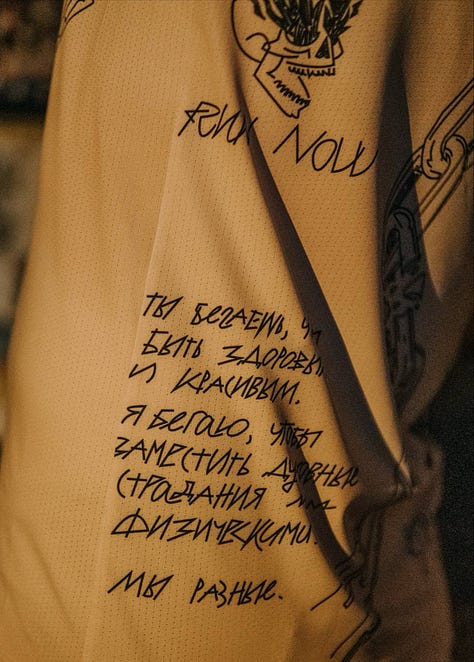 RUN NOW
ТЫ БЕГАЕШЬ,
БЫТЬ
И КРАСИВЫМ.
Я БЕГАЮ, ЧТОБЫ
ЗАМЕСТИТЬ ДУХОВНЫЕ
СТРАДАНИЯ
ФИЗИЧЕСКИМИ.
МЫ РАЗНЫЕ.